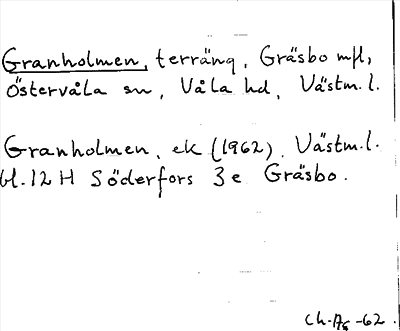 Granholmen, terräng, Gräsbo mfl,
Östervåla sn, Våla hd, Västm.l.
Granholmen, ek (1962). Västm.l.
bl. 12 H Söderfors 3 e Gräsbo.
-62.